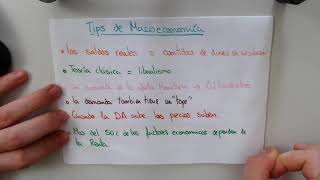 Tips de Macroeconomía
• Los saldos reales = cantidad de dinero en circulación
• Teoría clásica = liberalismo
• la demanda tambien tiene un "tope"
• Cuando la DA sube los precios suben
• Mas del 50% de los factores economicos dependen de
la Renta